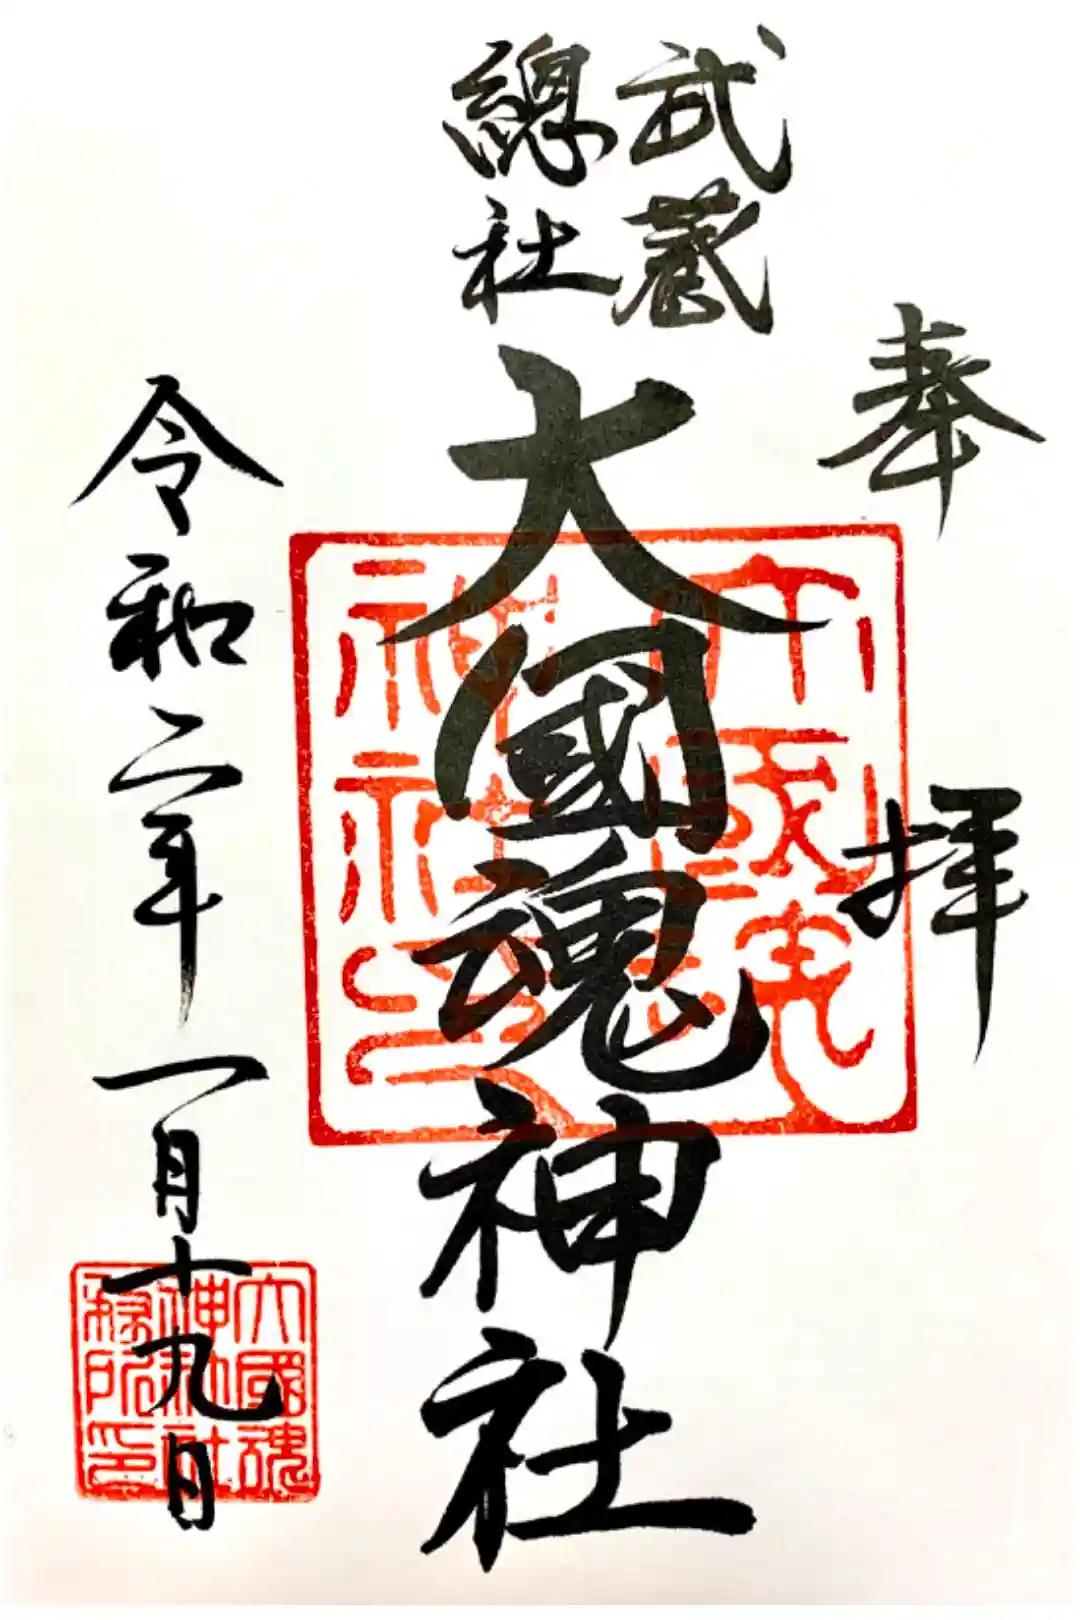 奉拝
武蔵
總社
大國魂神社
令和二年一月十九日
大國魂
神社
務所印